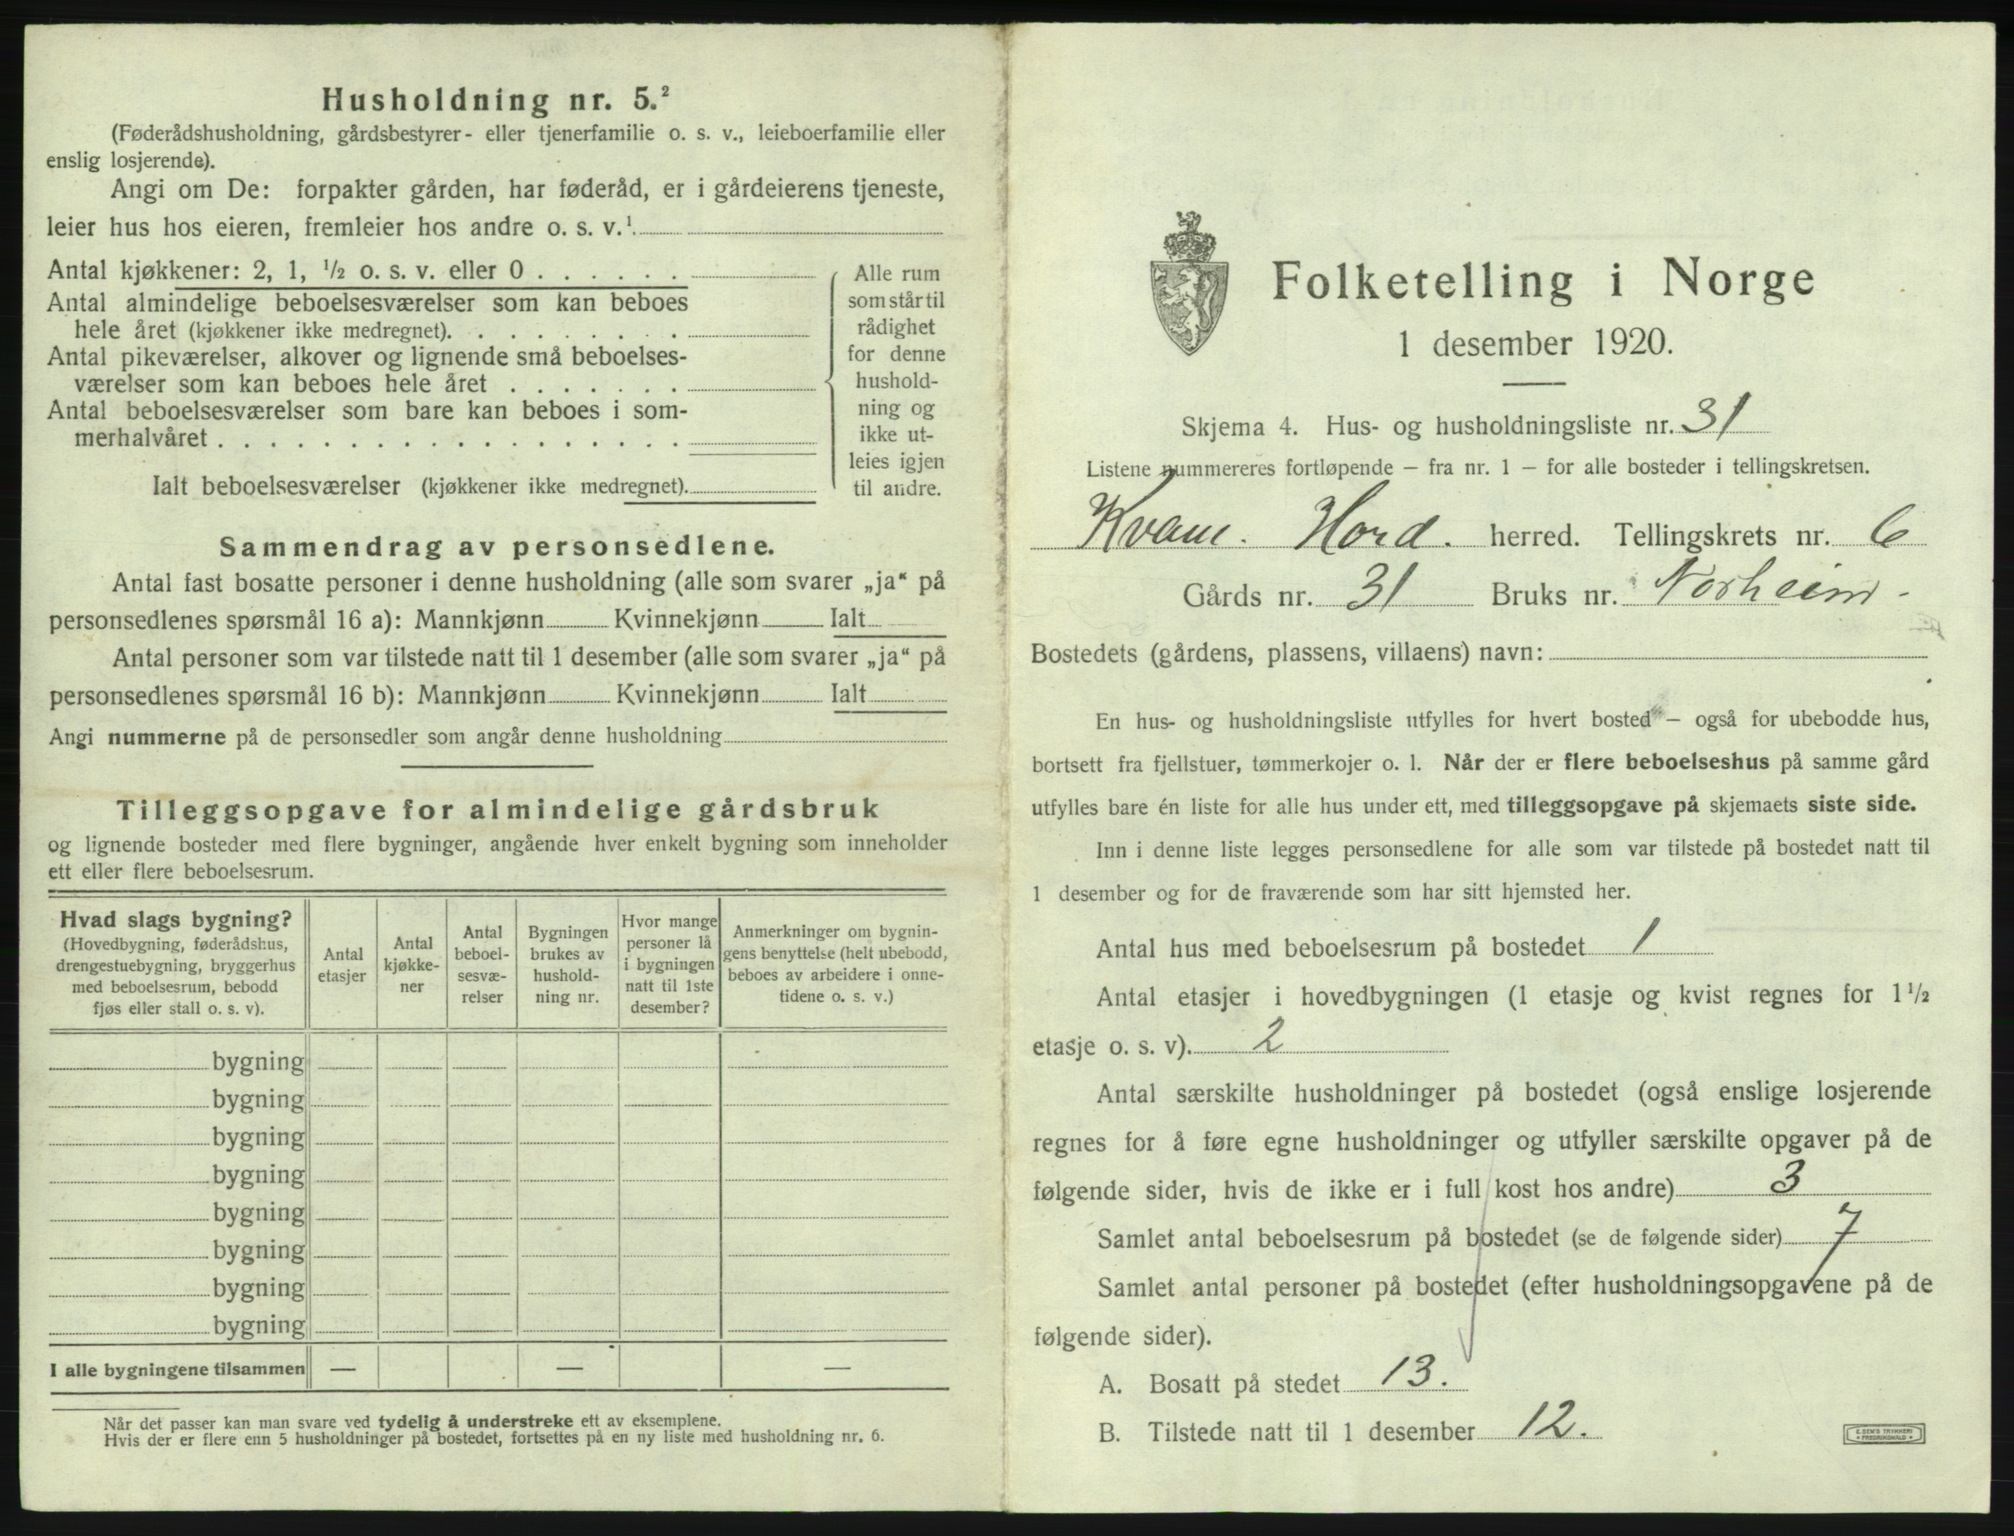 Husholdning nr. 5.²
(Føderådshusholdning, gårdsbestyrer- eller tjenerfamilie o. s. v., leieboerfamilie eller
enslig losjerende).
Angi om De: forpakter gården, har føderåd, er i gårdeierens tjeneste,
leier hus hos eieren, fremleier hos andre o. s. v.¹
Antal kjøkkener: 2, 1, ½ o. s. v. eller 0 . . . . . .
Antal almindelige beboelsesværelser som kan beboes
hele året (kjøkkener ikke medregnet). . . . . . . . .
Antal pikeværelser, alkover og lignende små beboelses-
værelser som kan beboes hele året . . . . . . .
Antal beboelsesværelser som bare kan beboes i som-
merhalvåret . . . . . . . . . . . . . . . . . .
Ialt beboelsesværelser (kjøkkener ikke medregnet).
Alle rum
som står til
rådighet
for denne
hushold-
ning og
ikke ut-
leies igjen
til andre.
Sammendrag av personsedlene.
Antal fast bosatte personer i denne husholdning (alle som svarer „ja“ på
personsedlenes spørsmål 16 a): Mannkjønn Kvinnekjønn Ialt
Antal personer som var tilstede natt til 1 desember (alle som svarer „ja“ på
personsedlenes spørsmål 16 b): Mannkjønn Kvinnekjønn Ialt
Angi nummerne på de personsedler som angår denne husholdning
Tilleggsopgave for almindelige gårdsbruk
og lignende bosteder med flere bygninger, angående hver enkelt bygning som inneholder
ett eller flere beboelsesrum.
Hvad slags bygning?
(Hovedbygning, føderådshus,
drengestuebygning, bryggerhus
med beboelsesrum, bebodd
fjøs eller stall o. s. v).
Antal
etasjer
Antal
kjøkke-
ner
Antal
beboel-
sesvæ-
relser
Bygningen
brukes av
hushold-
ning nr.
Hvor mange
personer lå
i bygningen
natt til 1ste
desember?
Anmerkninger om bygnin-
gens benyttelse (helt ubebodd,
beboes av arbeidere i onne-
tidene o. s. v.)
bygning
bygning
bygning
bygning
bygning
bygning
bygning
bygning
I alle bygningene tilsammen — — —
Når det passer kan man svare ved tydelig å understreke ett av eksemplene.
Hvis der er flere enn 5 husholdninger på bostedet, fortsettes på en ny liste med husholdning nr. 6.
Folketelling i Norge
1 desember 1920.
Skjema 4. Hus- og husholdningsliste nr. 31
Listene nummereres fortløpende – fra nr. 1 – for alle bosteder i tellingskretsen.
Kvam. Hord. herred. Tellingskrets nr. 6
Gårds nr. 31 Bruks nr. Norheim -
Bostedets (gårdens, plassens, villaens) navn:
En hus- og husholdningsliste utfylles for hvert bosted – også for ubebodde hus,
bortsett fra fjellstuer, tømmerkojer o. l. Når der er flere beboelseshus på samme gård
utfylles bare én liste for alle hus under ett, med tilleggsopgave på skjemaets siste side.
Inn i denne liste legges personsedlene for alle som var tilstede på bostedet natt til
1 desember og for de fraværende som har sitt hjemsted her.
Antal hus med beboelsesrum på bostedet 1
Antal etasjer i hovedbygningen (1 etasje og kvist regnes for 1½
etasje o. s. v). 2
Antal særskilte husholdninger på bostedet (også enslige losjerende
regnes for å føre egne husholdninger og utfyller særskilte opgaver på de
følgende sider, hvis de ikke er i full kost hos andre) 3
Samlet antal beboelsesrum på bostedet (se de følgende sider) 7
Samlet antal personer på bostedet (efter husholdningsopgavene på de
følgende sider).
A. Bosatt på stedet 13.
B. Tilstede natt til 1 desember 12.
E. SEM'S TRYKKERI
* FREDRIKSHALD *